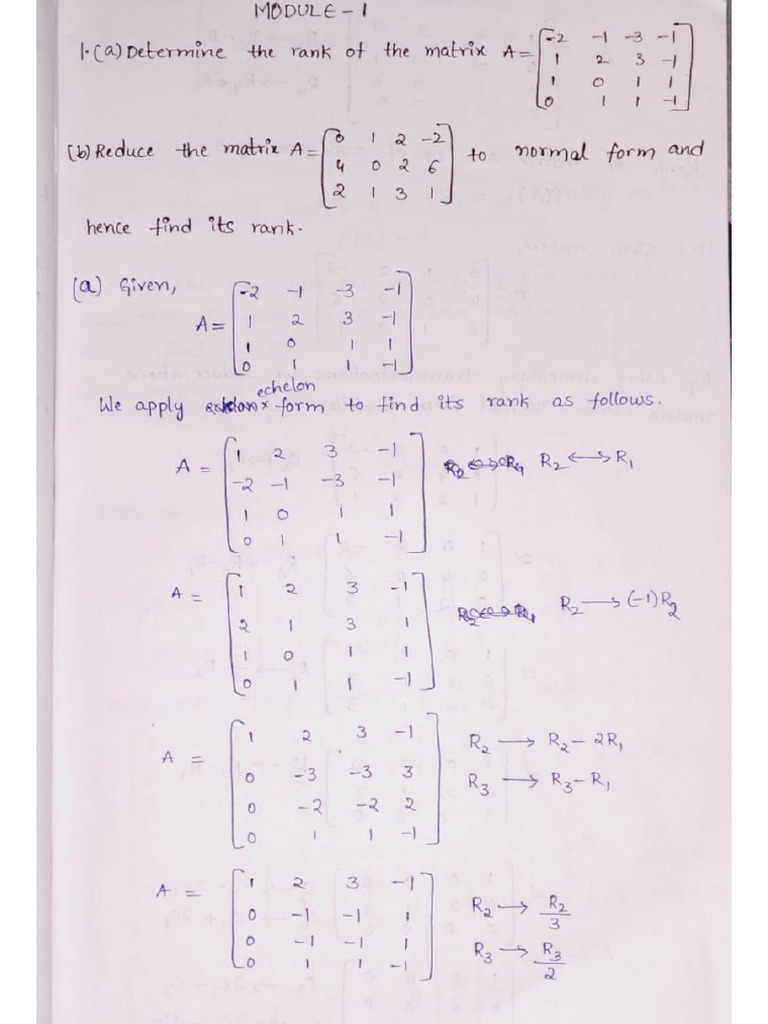 MODULE-1
1.(a) Determine the rank of the matrix A = [-2 -1 -3 -1
1 2 3 -1
1 0 1 1
0 1 1 -1]
(b) Reduce the matrix A = [0 1 2 -2
4 0 2 6
2 1 3 1] to normal form and
hence find its rank.
(a) Given,
A = [-2 -1 -3 -1
1 2 3 -1
1 0 1 1
0 1 1 -1]
We apply echelon form to find its rank as follows.
A = [1 2 3 -1
-2 -1 -3 -1
1 0 1 1
0 1 1 -1] R2 ↔ R1
A = [1 2 3 -1
2 1 3 1
1 0 1 1
0 1 1 -1] R2 → (-1)R2
A = [1 2 3 -1
0 -3 -3 3
0 -2 -2 2
0 1 1 -1] R2 → R2 - 2R1
R3 → R3 - R1
A = [1 2 3 -1
0 -1 -1 1
0 -1 -1 1
0 1 1 -1] R2 → R2/3
R3 → R3/2